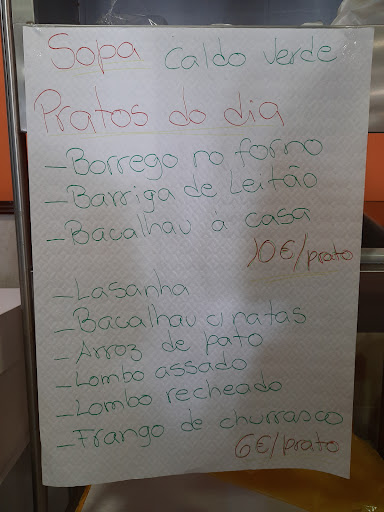 Sopa caldo verde
Pratos do dia
- Borrego no forno
- Barriga de Leitão
- Bacalhau à casa
10€/prato
- Lasanha
- Bacalhau c/natas
- Arroz de pato
- Lombo assado
- Lombo recheado
- Frango de churrasco
6€/prato